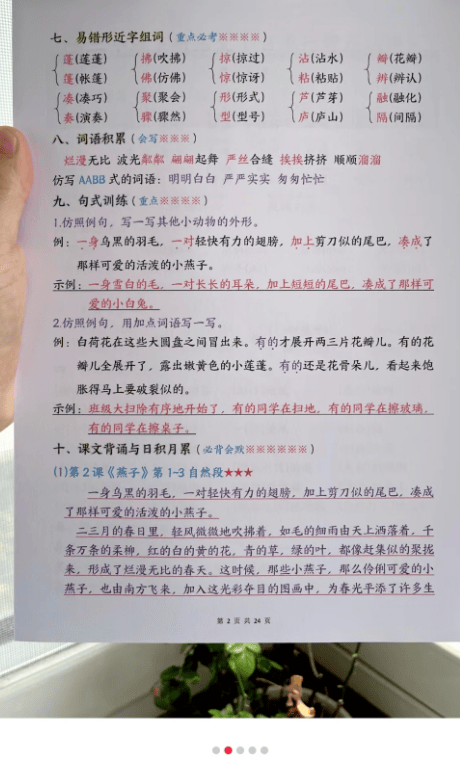 七、易错形近字组词（重点必考※※※※）
蓬(莲蓬) 拂(吹拂) 掠(掠过) 沾(沾水) 瓣(花瓣)
篷(帐篷) 佛(仿佛) 惊(惊讶) 粘(粘贴) 辨(辨认)
凑(凑巧) 聚(聚会) 形(形式) 芦(芦芽) 融(融化)
奏(演奏) 骤(骤然) 型(型号) 庐(庐山) 隔(间隔)
八、词语积累（会写※※※）
烂漫无比 波光粼粼 翩翩起舞 严丝合缝 挨挨挤挤 顺顺溜溜
仿写AABB式的词语：明明白白 严严实实 匆匆忙忙
九、句式训练（重点※※※※）
1.仿照例句，写一写其他小动物的外形。
例：一身乌黑的羽毛，一对轻快有力的翅膀，加上剪刀似的尾巴，凑成了
那样可爱的活泼的小燕子。
示例：一身雪白的毛，一对长长的耳朵，加上短短的尾巴，凑成了那样可
爱的小白兔。
2.仿照例句，用加点词语写一写。
例：白荷花在这些大圆盘之间冒出来。有的才展开两三片花瓣儿。有的花
瓣儿全展开了，露出嫩黄色的小莲蓬。有的还是花骨朵儿，看起来饱
胀得马上要破裂似的。
示例：班级大扫除有序地开始了，有的同学在扫地，有的同学在擦玻璃，
有的同学在擦桌子。
十、课文背诵与日积月累（必背会默※※※※※※）
(1)第2课《燕子》第1-3自然段★★★
一身乌黑的羽毛，一对轻快有力的翅膀，加上剪刀似的尾巴，凑成
了那样可爱的活泼的小燕子。
二三月的春日里，轻风微微地吹拂着，如毛的细雨由天上洒落着，千
条万条的柔柳，红的白的黄的花，青的草，绿的叶，都像赶集似的聚拢
来，形成了烂漫无比的春天。这时候，那些小燕子，那么伶俐可爱的小
燕子，也由南方飞来，加入这光彩夺目的图画中，为春光平添了许多生
第 2 页 共 24 页